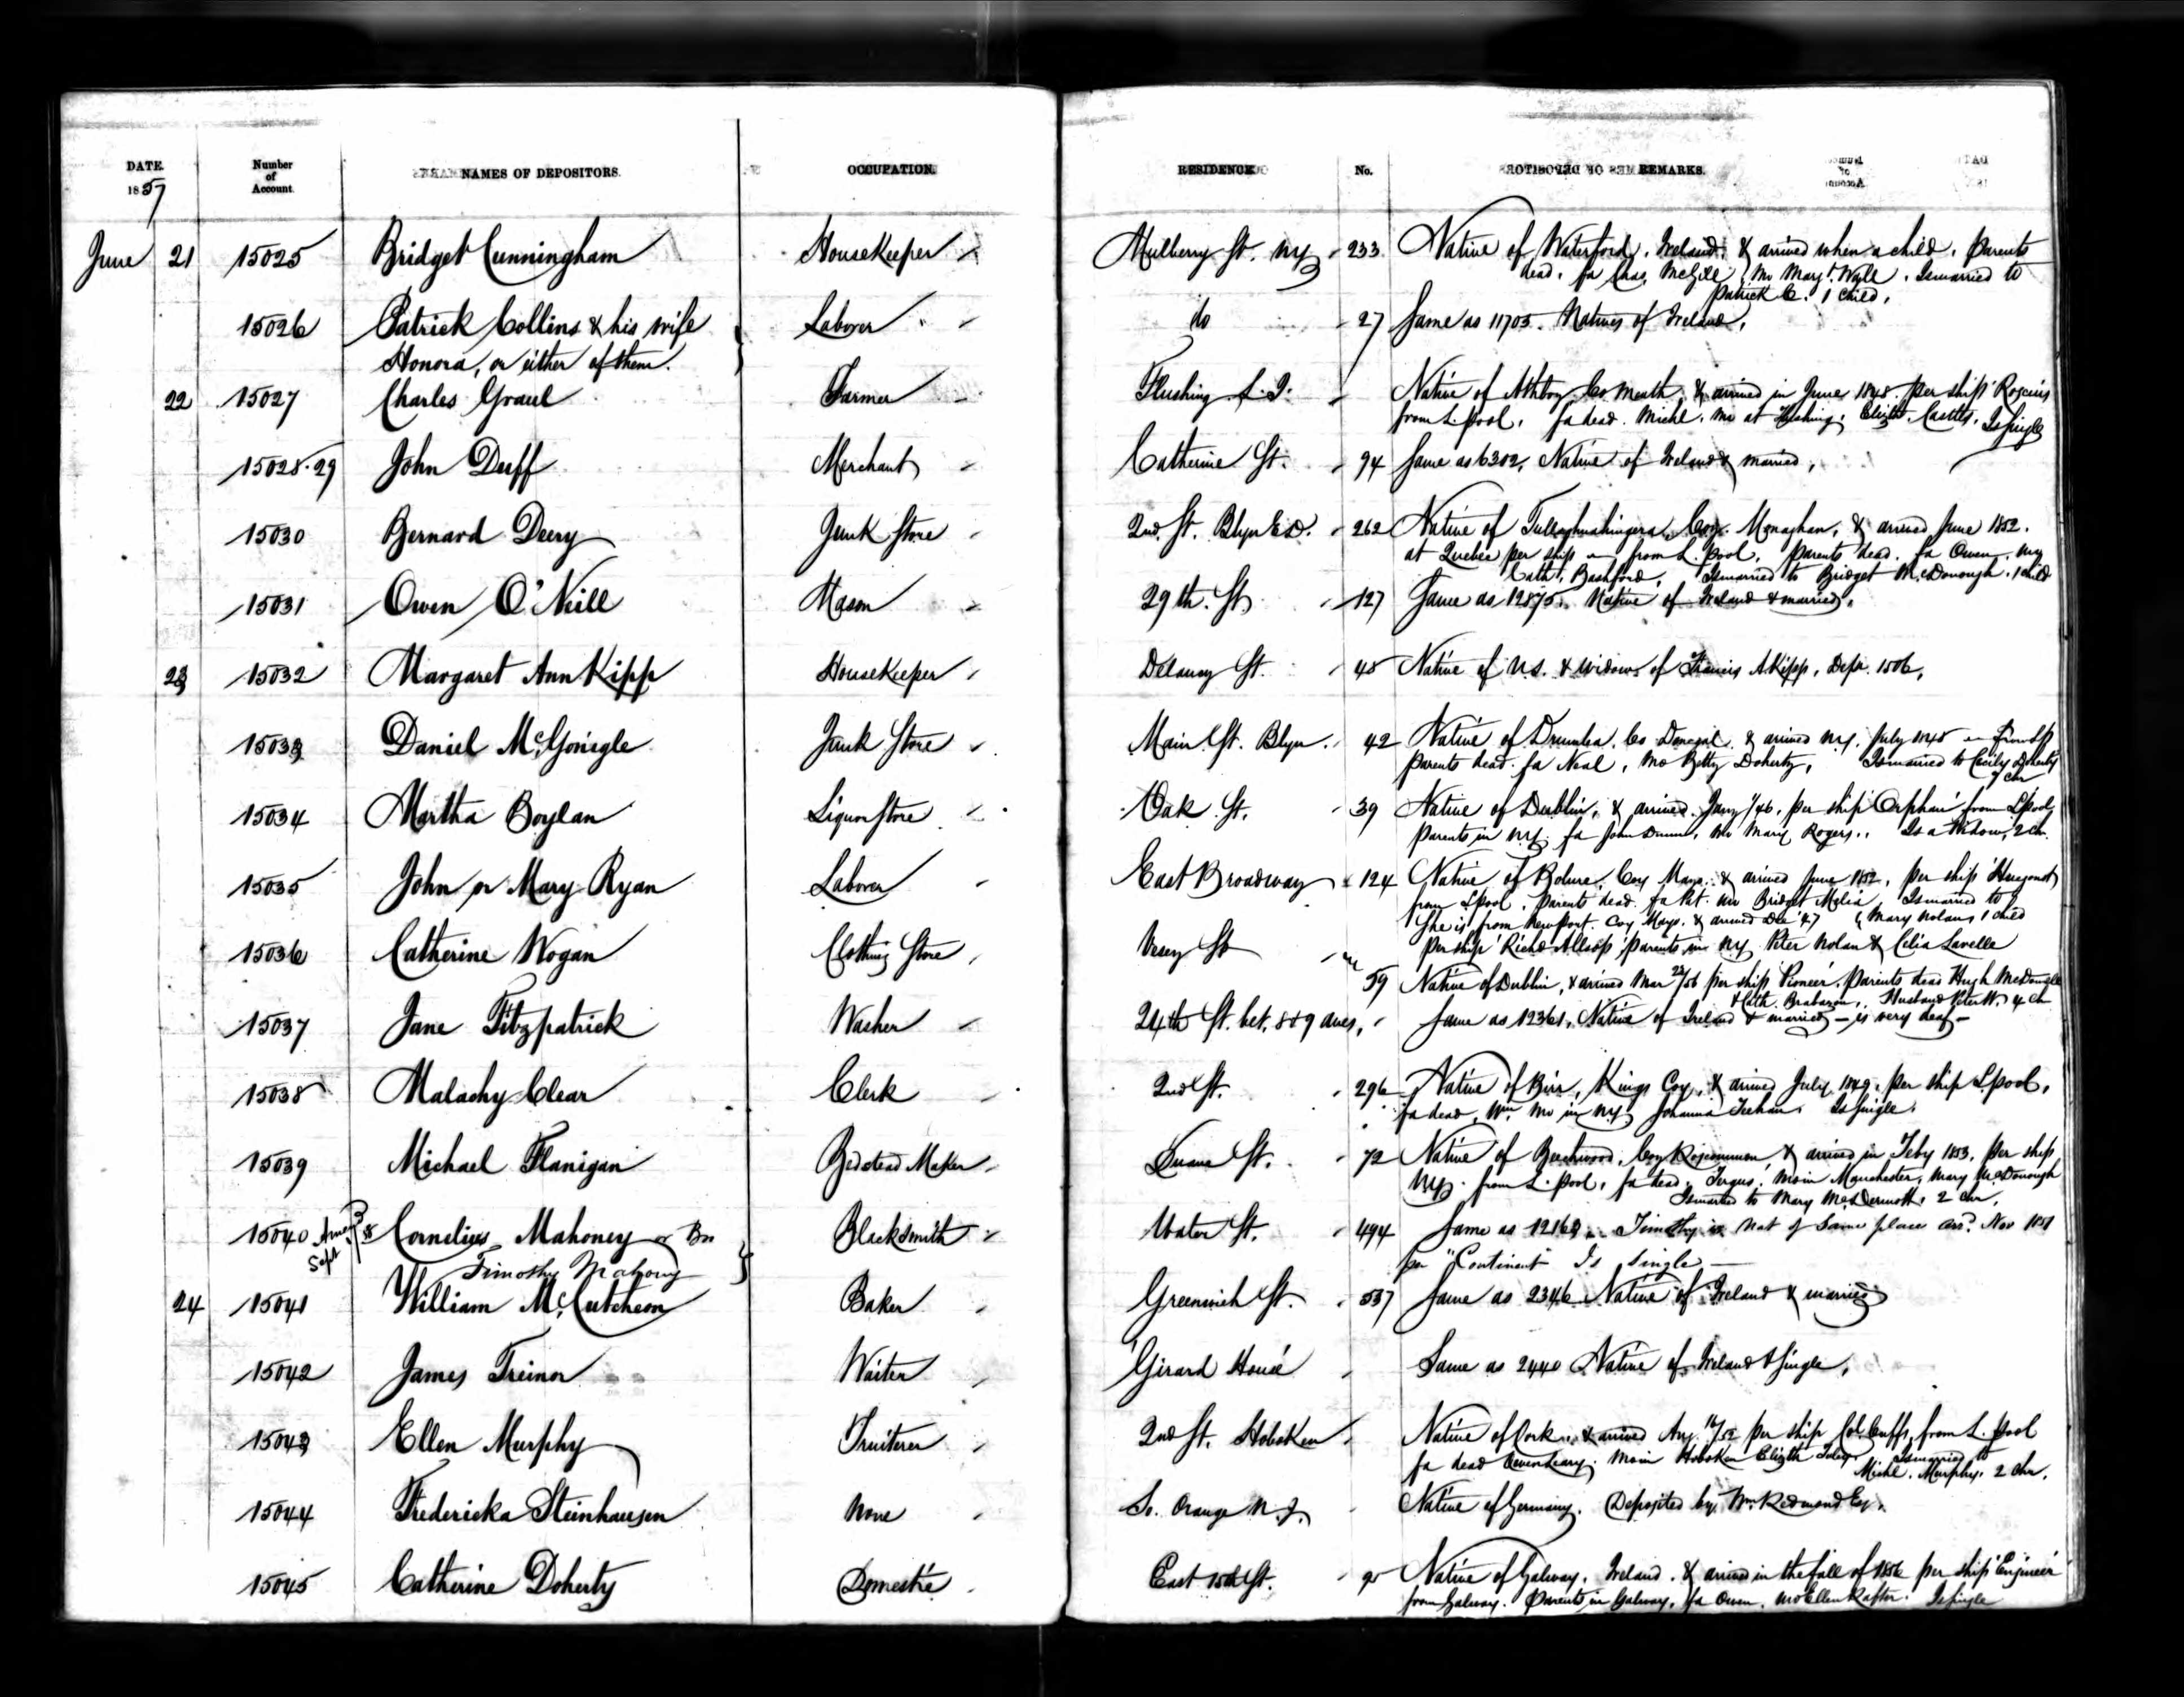 DATE. Number of Account. NAMES OF DEPOSITORS. OCCUPATION. RESIDENCE. No. REMARKS.
1857
June 21 15025 Bridget Cunningham Housekeeper Mulberry St. N.Y. 233 Native of Waterford, Ireland, & arrived when a child. Parents
dead. fa Chas. McGill, Mo Mary Is married to
Patrick C. 1 child.
15026 Patrick Collins & his wife Laborer do 27 Same as 11703. Natives of Ireland.
Honora, or either of them.
22 15027 Charles Graul Farmer Flushing L.I. Native of Athboy Co Meath, & arrived in June 1848. per ship Roscius
from L.pool. fa dead. Michl. Mo at Flushing. Elizth. Is single
15028.29 John Duff Merchant Catherine St. 94 Same as 6302, Native of Ireland & married.
15030 Bernard Deery Junk Store 2nd St. Blyn E.D. 262 Native of Coy. Monaghan, & arrived June 1852.
at Quebec per ship — from L.pool. Parents dead. fa Owen. Mo
Cath. Bashford. Is married to Bridget McDonough. 1 child
15031 Owen O'Neill Mason 29th. St. 127 Same as 12875. Native of Ireland & married.
23 15032 Margaret Ann Kipp Housekeeper Delancy St. 45 Native of U.S. & widow of Francis A Kipp, Depr. 1506.
15033 Daniel McGonegle Junk Store Main St. Blyn. 42 Native of Co Donegal. & arrived N.Y. July 1845
Parents dead. fa Neal, Mo Betty Doherty, Is married to Cecily Doherty
chn
15034 Martha Boylan Liquor Store Oak St. 39 Native of Dublin, & arrived Jany 1/46. per ship 'Orphan' from L.pool
parents in N.Y. fa John Dunn, Mo Mary Rogers. Is a Widow, 2 Ch.
15035 John or Mary Ryan Laborer East Broadway 124 Native of Coy Mayo. & arrived June 1852. per ship 'Huegonot'
from L.pool. Parents dead. fa Pat. Mo Bridget Melia. Is married to
She is from Newport. Coy Mayo. & arrived Dec '47 (Mary Nolan, 1 child
per ship 'Richd Allsop' parents in N.Y. Peter Nolan & Celia Lavelle
15036 Catherine Wogan Clothing Store Vesey St 59 Native of Dublin, & arrived Mar 22/56 per ship 'Pioneer'. Parents dead Hugh
& Cath. Brabazon. Husband Peter W. 4 Ch
15037 Jane Fitzpatrick Washer 24th St. bet. 8 & 9 aves. Same as 12361. Native of Ireland & married — is very deaf —
15038 Malachy Clear Clerk 2nd St. 296 Native of Birr, Kings Coy, & arrived July 1849. per ship L.pool.
fa dead, Wm. Mo in N.Y. Johanna Is single.
15039 Michael Flanigan Bedstead Maker Duane St. 72 Native of Beechwood, Coy Roscommon, & arrived in Feby 1853. per ship
N.Y. from L.pool. fa dead. Fergus. Mo in Manchester, Mary McDonough
Is married to Mary McDermott. 2 chn.
15040 Cornelius Mahoney or Bro Blacksmith Water St. 494 Same as 12169. Timothy is Nat of Same place arrd. Nov 1851
Sept Timothy Mahony per "Continent" Is Single —
24 15041 William McCutcheon Baker Greenwich St. 537 Same as 2346 Native of Ireland & married
15042 James Treinor Waiter Girard House Same as 2440 Native of Ireland & Single.
15043 Ellen Murphy Fruiterer 2nd St. Hoboken Native of Cork, & arrived Aug. 16/52 per ship Col. Cuffs, from L.pool
fa dead Owen Leary. Mo in Hoboken Elizth Foley. Is married to
Michl. Murphy. 2 Chn.
15044 Fredericka Steinhausen None So. Orange N.J. Native of Germany. Deposited by Wm. Redmond Esq.
15045 Catherine Doherty Domestic East 15th St. Native of Galway, Ireland. & arrived in the fall of 1856 per ship 'Engineer'
from Galway. Parents in Galway, fa Owen. Mo Ellen Rafter. Is single